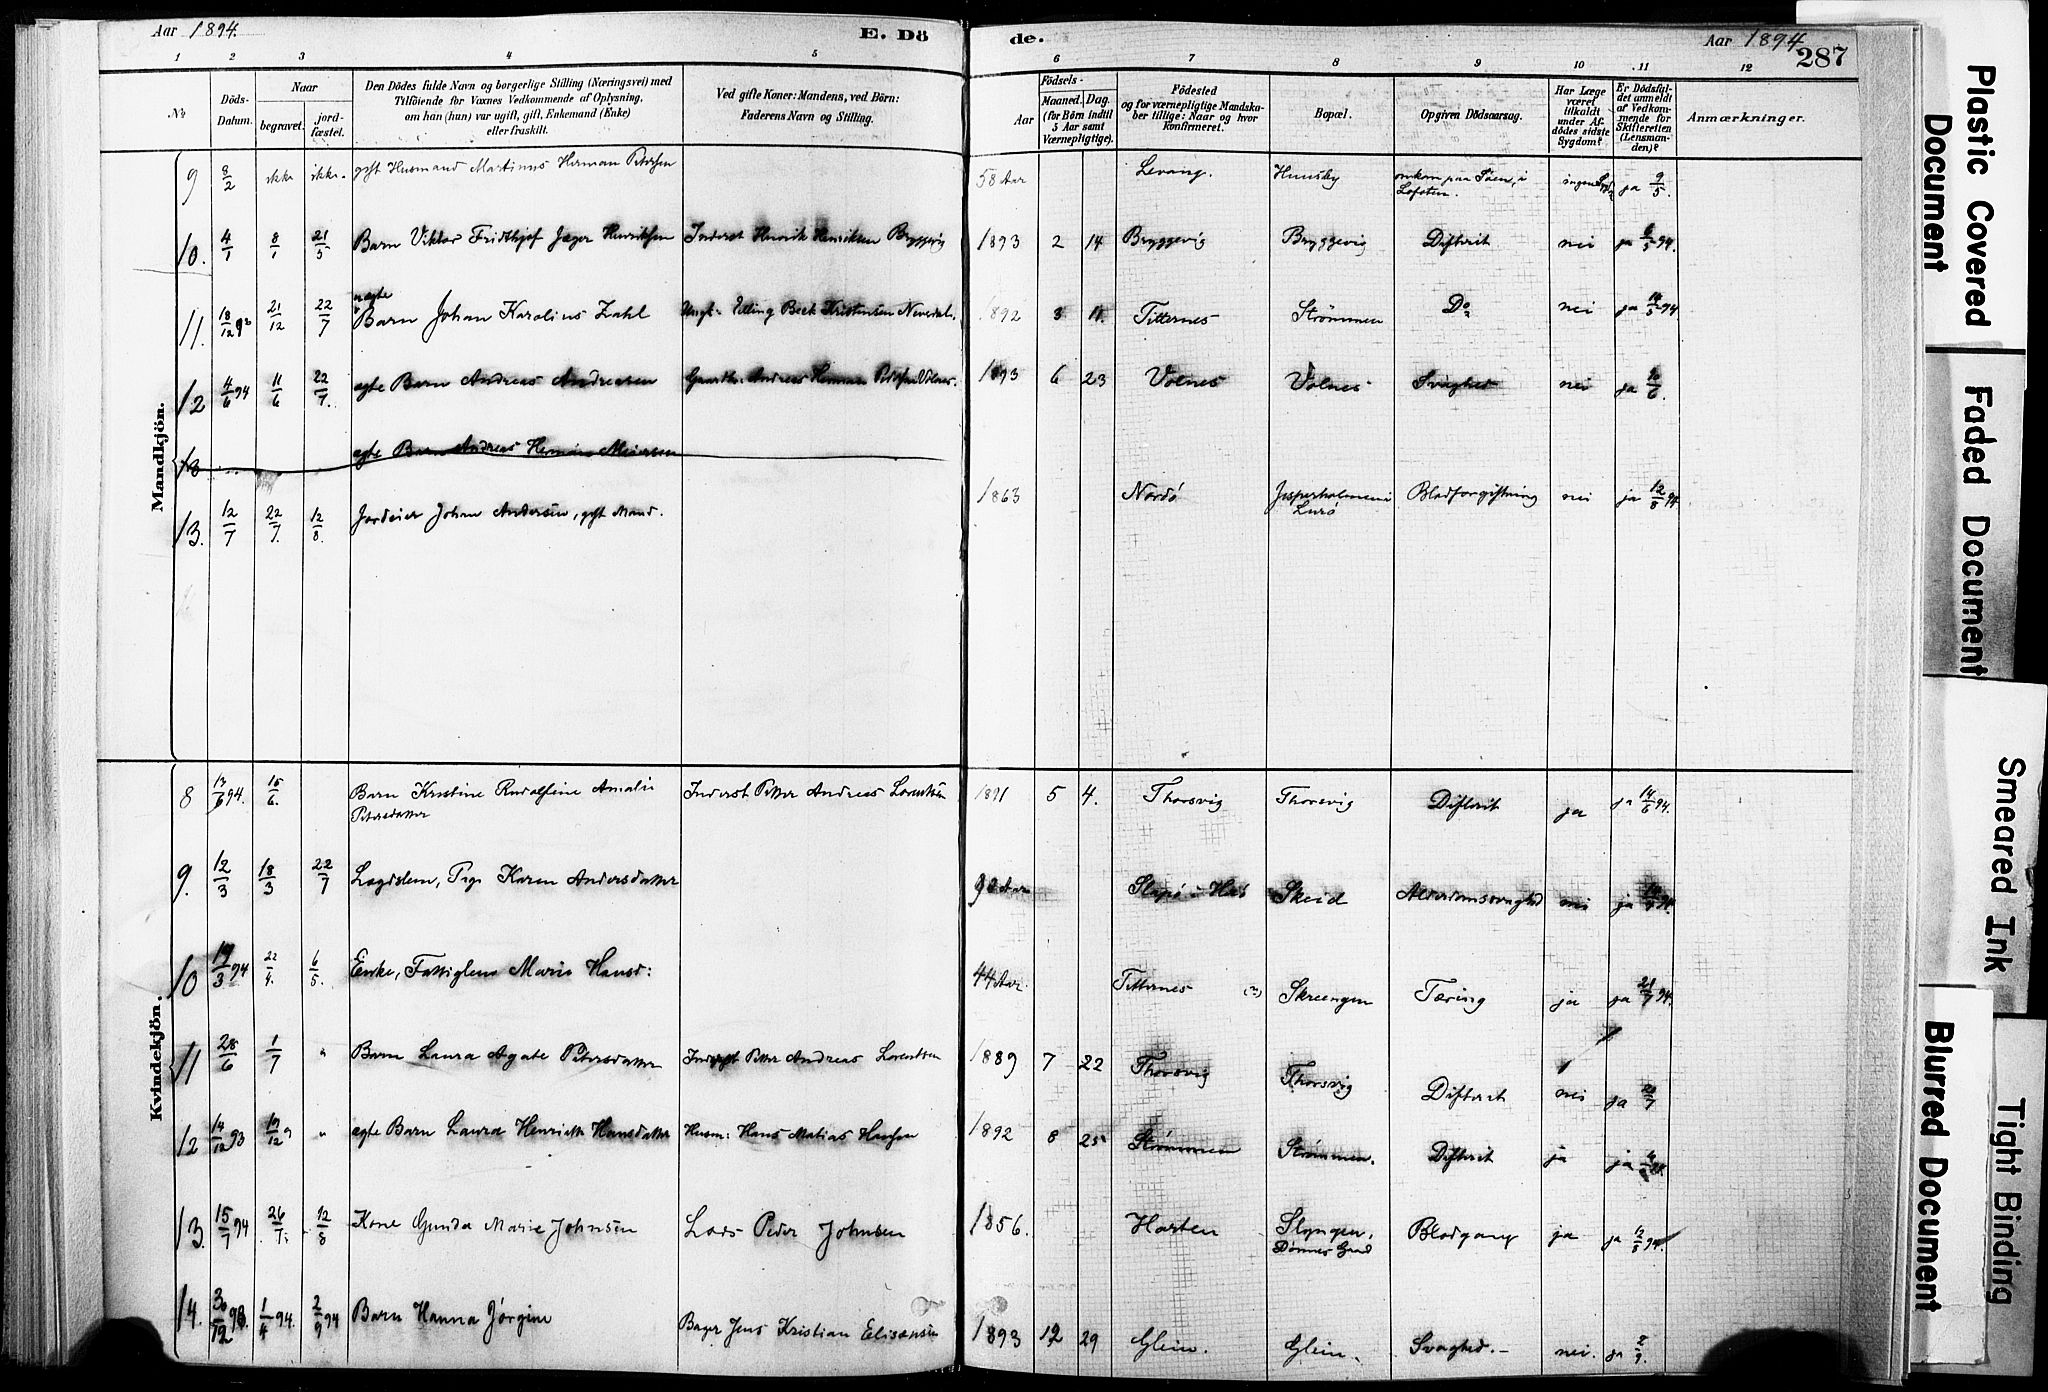 Aar 1894. E. Dö
1 2 3 4 5
No Döds-Datum. Naar begravet. jord-fæstet.
Den Dödes fulde Navn og borgerlige Stilling (Næringsvei) med
Tilföiende for Voxnes Vedkommende af Oplysning,
om han (hun) var ugift, gift, Enkemand (Enke)
eller fraskilt.
Ved gifte Koner: Mandens, ved Börn:
Faderens Navn og Stilling.
Mandkjön.
9 8/2 ikke ikke. gift Husmand Martinus Herman Petersen
10. 4/1 8/1 21/5 Barn Viktor Fridthjof Jæger Henriksen Inderst Henrik Henriksen Bryggevig
11. 18/12 93 21/12 22/7 uægte Barn Johan Karolius Zahl Ungk. Elling Beck Kristensen Neverdal.
12 4/6 94 11/6 22/7. ægte Barn Andreas Andreasen Gaardbr. Andreas Herman Petersen Volnes.
13 ægte Barn Andreas Herman Meiersen
13. 12/7 22/7. 12/8. Jordeier Johan Andersen, gift Mand.
Kvindekjön.
8 13/6 94. 15/6. Barn Kristine Rudolfine Amalie Inderst Petter Andreas Lorentsen
Petersdatter
9. 12/3 18/3 22/7 Lægdslem, Pige Karen Andersdatter
10 19/3 94 22/4. 6/5. Enke, Fattiglem Marie Hansd:
11 28/6 1/7 " Barn Laura Agate Petersdatter Inderst Petter Andreas Lorentsen
12 14/12 93 19/12 " ægte Barn Laura Henriette Hansdatter Husm: Hans Matias Hansen
13. 15/7 94 26/7. 12/8 Kone Gunda Marie Johnsen Lars Peder Johnsen
14. 30/12 93. 1/4 94. 2/9 94 Barn Hanna Jörgine Bager Jens Kristian Elisæusen
de. Aar 1894 287
6 7 8 9 10 11 12
Födsels-
Aar Maaned. Dag.
(for Börn indtil
5 Aar samt
Værnepligtige).
Födested
og for værnepligtige Mandska-
ber tillige: Naar og hvor
Konfirmeret.
Bopæl.
Opgiven Dödsaarsag.
Har Læge
været
tilkaldt
under Af-
dödes sidste
Sygdom?
Er Dödsfal-
det anmeldt
af Vedkom-
mende for
Skifteretten
(Lensman-
den)?
Anmærkninger.
58 Aar Levang. Huusby omkom paa Söen, i Lofoten. ingen ja 9/5.
1893 2 14 Bryggevig Bryggevig Difterit nei ja 94.
1892 3 11. Titternes Strömmen Do nei ja 94
1893 6 23 Volnes Volnes Svaghed nei ja
1863 Nordö Jesperholmen i Lurö Blodforgiftning nei ja 12/8 94.
1891 5 4. Thorsvig Thorsvig Difterit ja ja 14/6 94.
90 Aar Slapö i Herö Skeid Alderdomssvaghed nei ja 94.
44 Aar. Titternes (?) Skreengen Tæring ja ja 21/7 94.
1889 7 22 Thorsvig Thorsvig Difterit nei ja
1892 8 25 Strömmen Strömmen. Difterit ja ja
1856. Hasten Slyngen, Dönnes Gaard Blodgang ja ja 12/8 94.
1893 12 29 Glein. Glein. Svaghed. nei. ja 2/9.
Plastic Covered Document
Faded Document
Smeared Ink
Blurred Document
Tight Binding